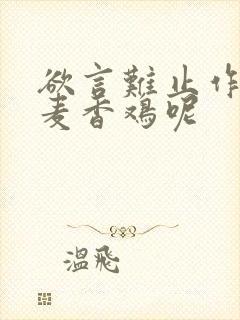 欲言難止作
麦香鸡呢
温飛